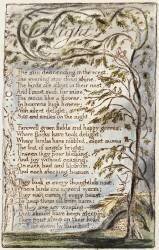 Night
The sun descending in the west,
The evening star does shine.
The birds are silent in their nest,
And I must seek for mine,
The moon like a flower,
In heavens high bower;
With silent delight,
Sits and smiles on the night.
Farewell green fields and happy groves,
Where flocks have took delight;
Where lambs have nibbled, silent moves
The feet of angels bright;
Unseen they pour blessing,
And joy without ceasing,
On each bud and blossom,
And each sleeping bosom.
They look in every thoughtless nest,
Where birds are coverd warm;
They visit caves of every beast,
To keep them all from harm:
If they see any weeping,
That should have been sleeping
They pour sleep on their head
And sit down by their bed.